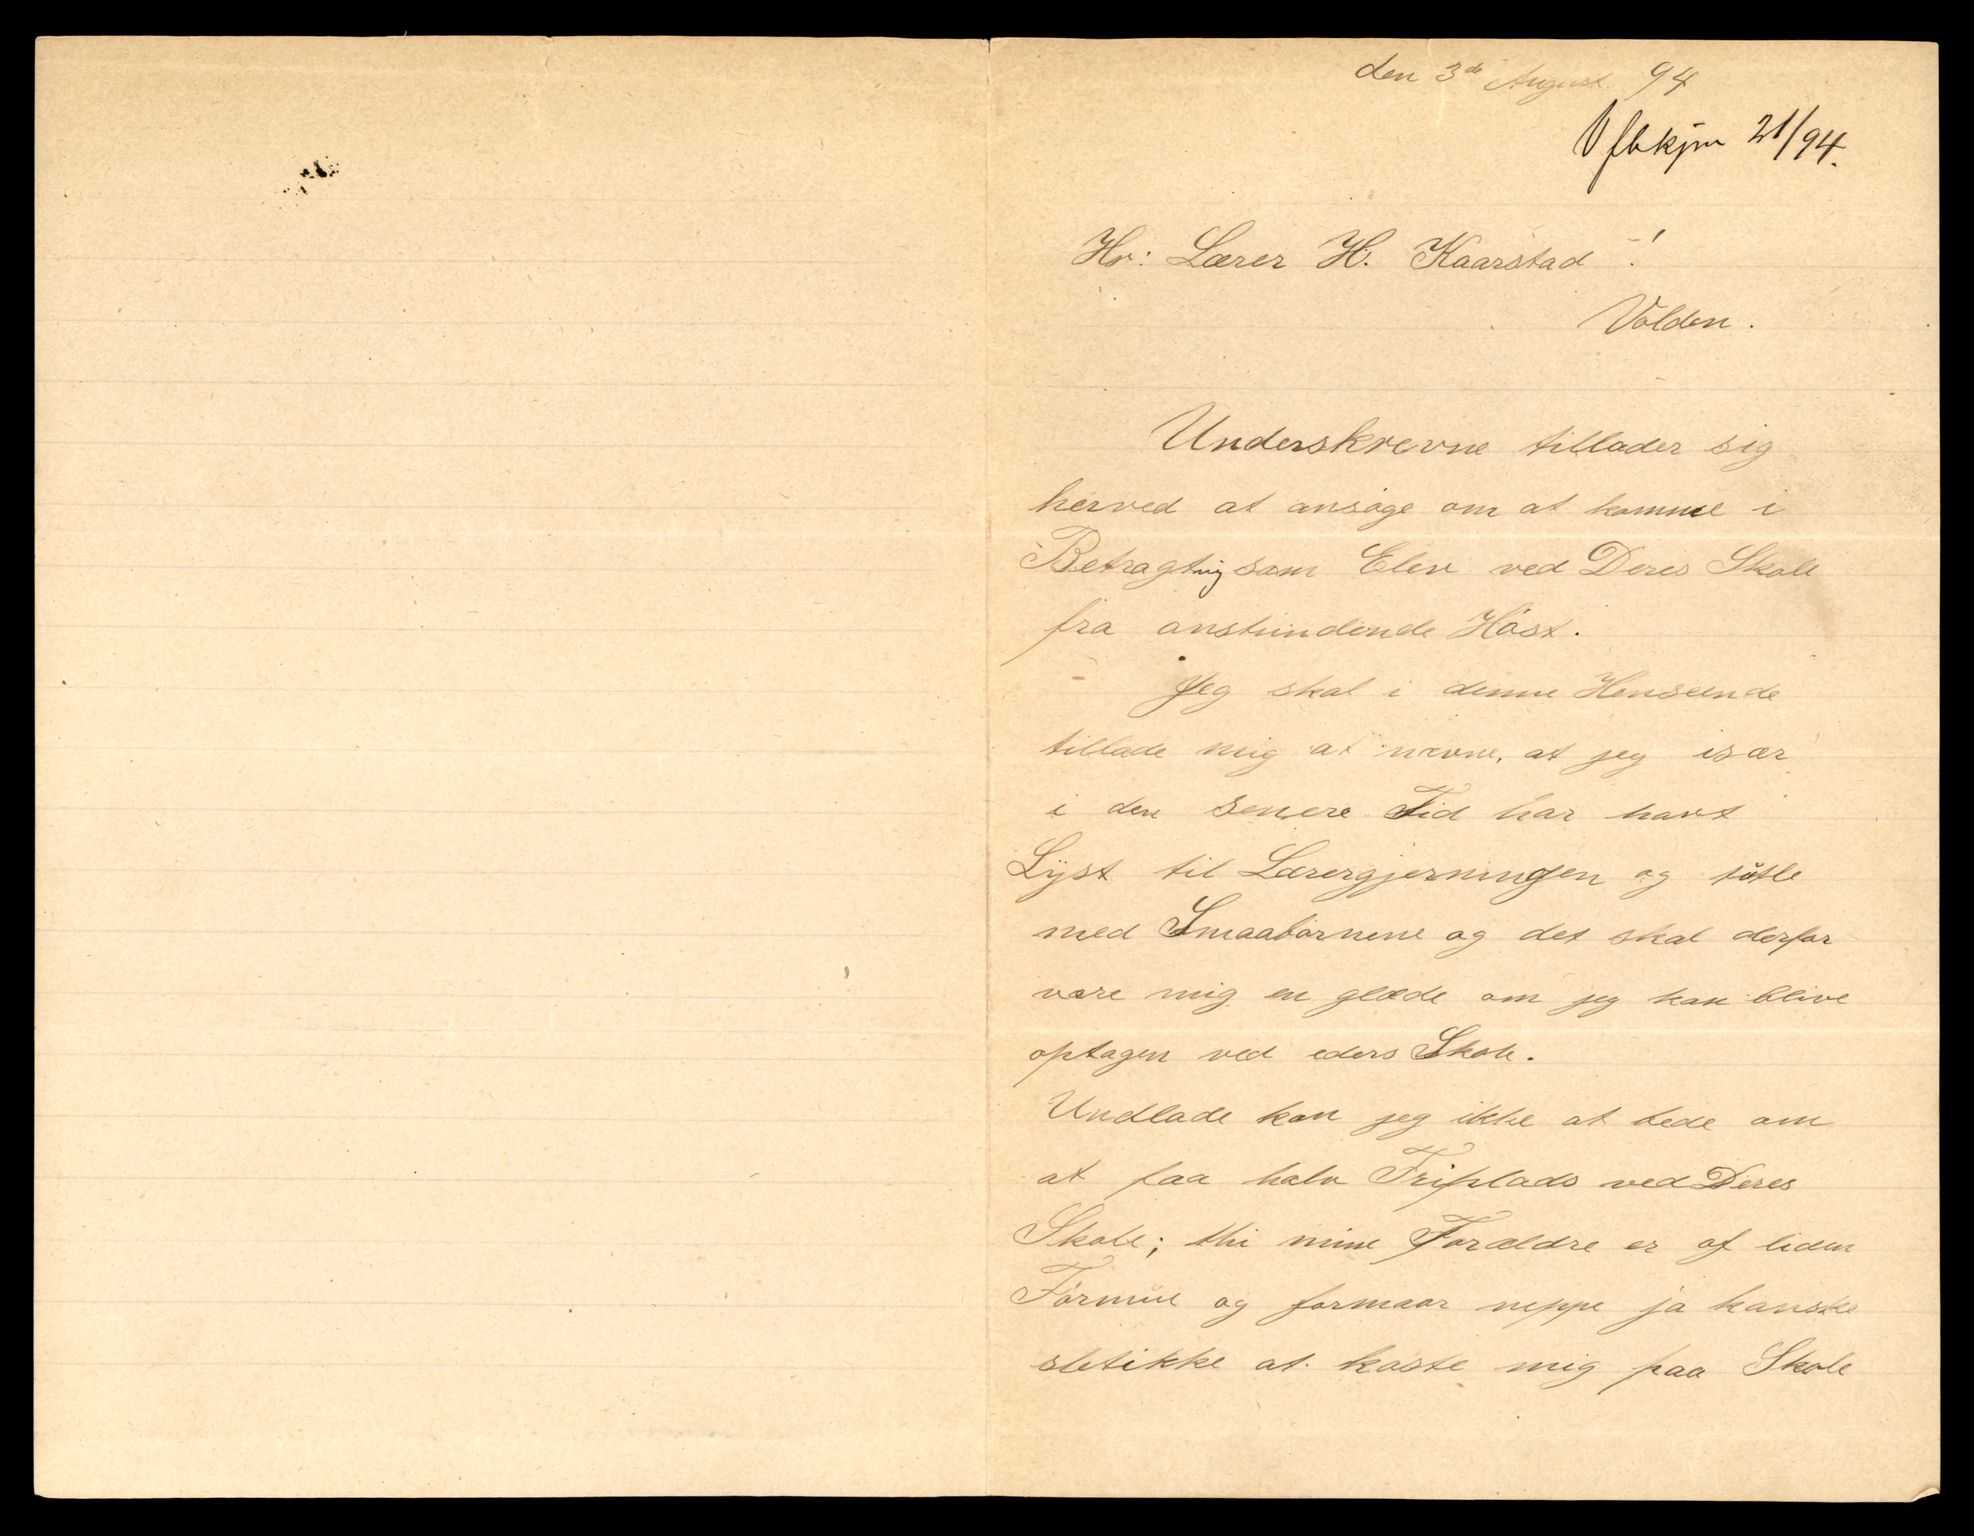 den 3de August 94
V flskjm 21/94.
Hr: Lærer H. Kaarstad !
Volden.
Underskrevne tillader sig
herved at ansøge om at komme i
Betragtnig som Elev ved Deres Skole
fra anstundende Høst.
Jeg skal i denne Henseende
tillade mig at nævne, at jeg især
i den senere Tid har havt
Lyst til Lærergjerningen og tútle
med Smaabørnene og det skal derfor
være mig en glæde om jeg kan blive
optagen ved eders Skole.
Undlade kan jeg ikke at bede om
at faa halv Friplads ved Deres
Skole; thi mine Forældre er af liden
Formúe og formaar neppe ja kanske
sletikke at koste mig paa Skole